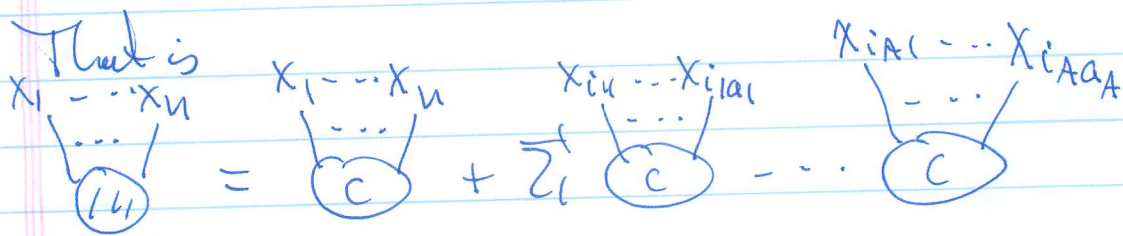 That is
x_1 - - - x_n   x_1 - - - x_n   x_{i11} - - - x_{i1a1}   x_{iA1} - - - x_{iAaA}
... ... ... ...
= C + Σ' C - - - C